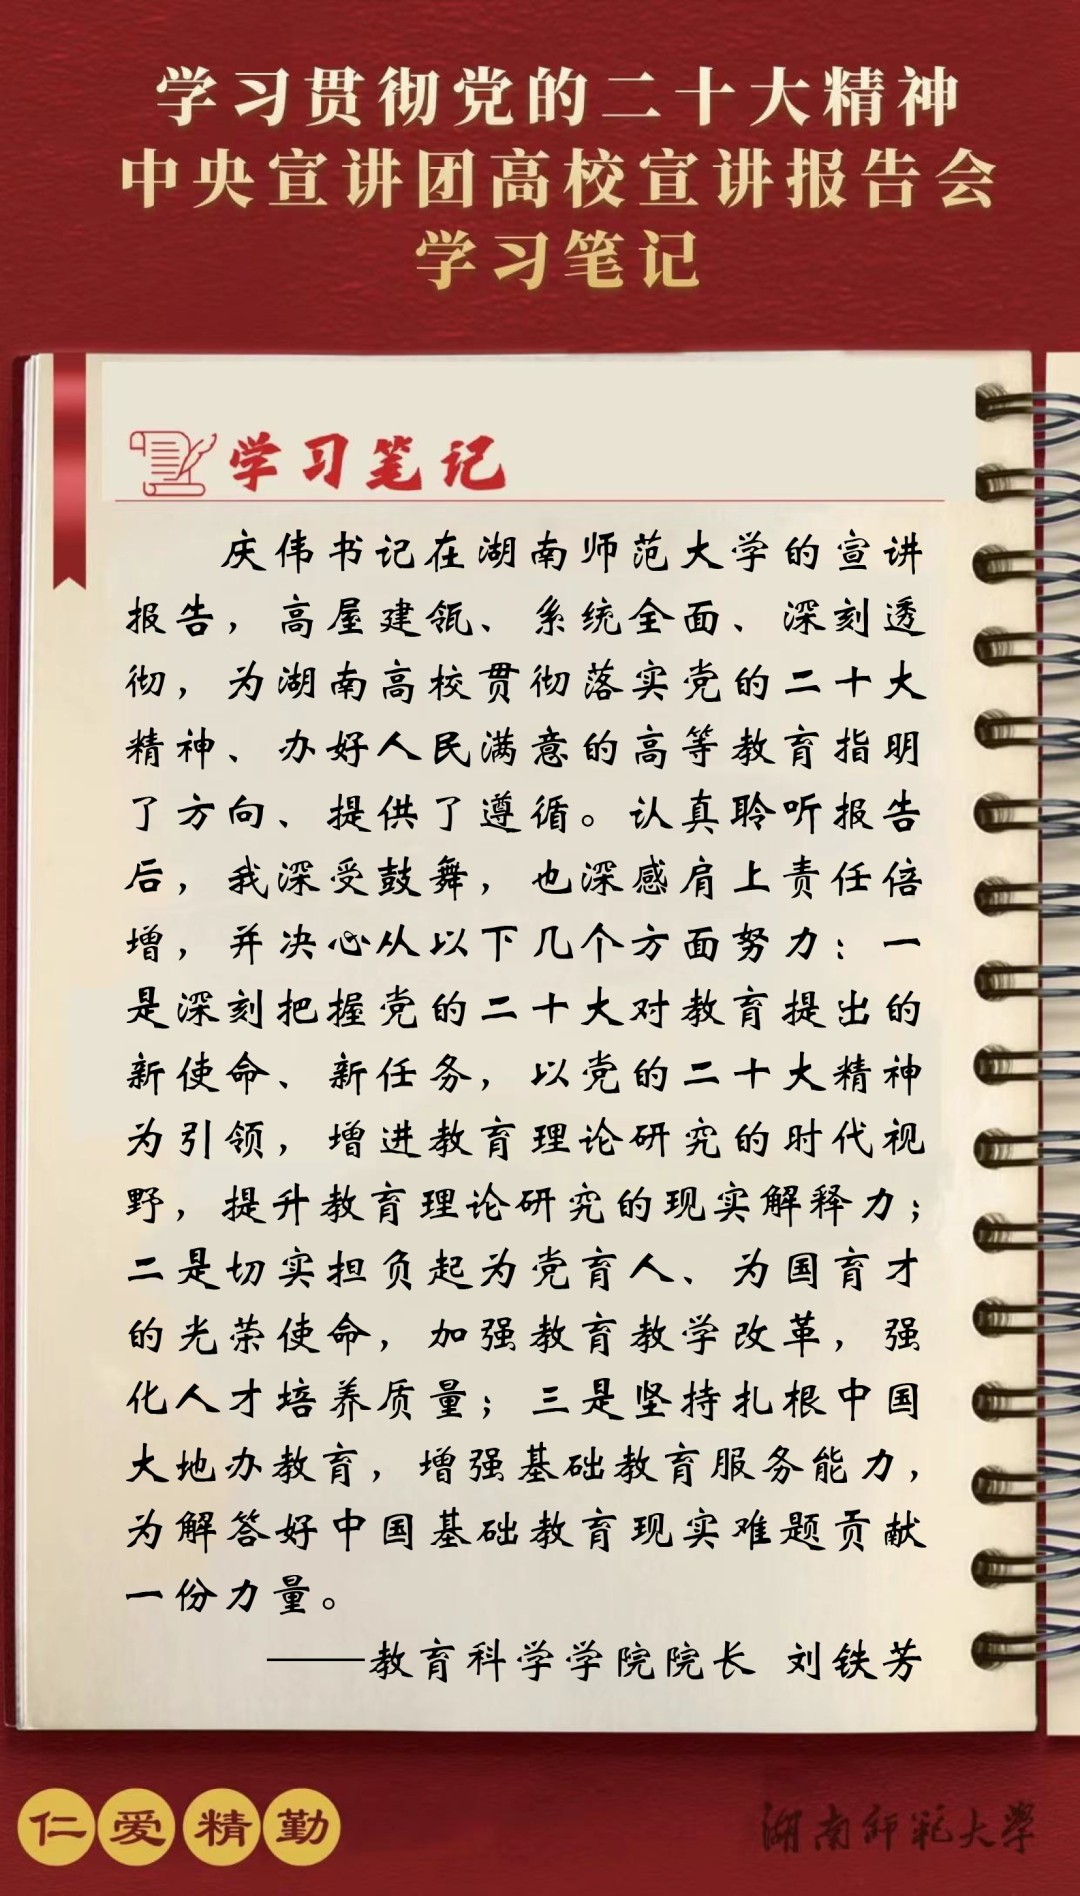 学习贯彻党的二十大精神
中央宣讲团高校宣讲报告会
学习笔记
学习笔记
庆伟书记在湖南师范大学的宣讲
报告，高屋建瓴、系统全面、深刻透
彻，为湖南高校贯彻落实党的二十大
精神、办好人民满意的高等教育指明
了方向、提供了遵循。认真聆听报告
后，我深受鼓舞，也深感肩上责任倍
增，并决心从以下几个方面努力：一
是深刻把握党的二十大对教育提出的
新使命、新任务，以党的二十大精神
为引领，增进教育理论研究的时代视
野，提升教育理论研究的现实解释力；
二是切实担负起为党育人、为国育才
的光荣使命，加强教育教学改革，强
化人才培养质量；三是坚持扎根中国
大地办教育，增强基础教育服务能力，
为解答好中国基础教育现实难题贡献
一份力量。
——教育科学学院院长 刘铁芳
仁爱精勤
湖南师范大学